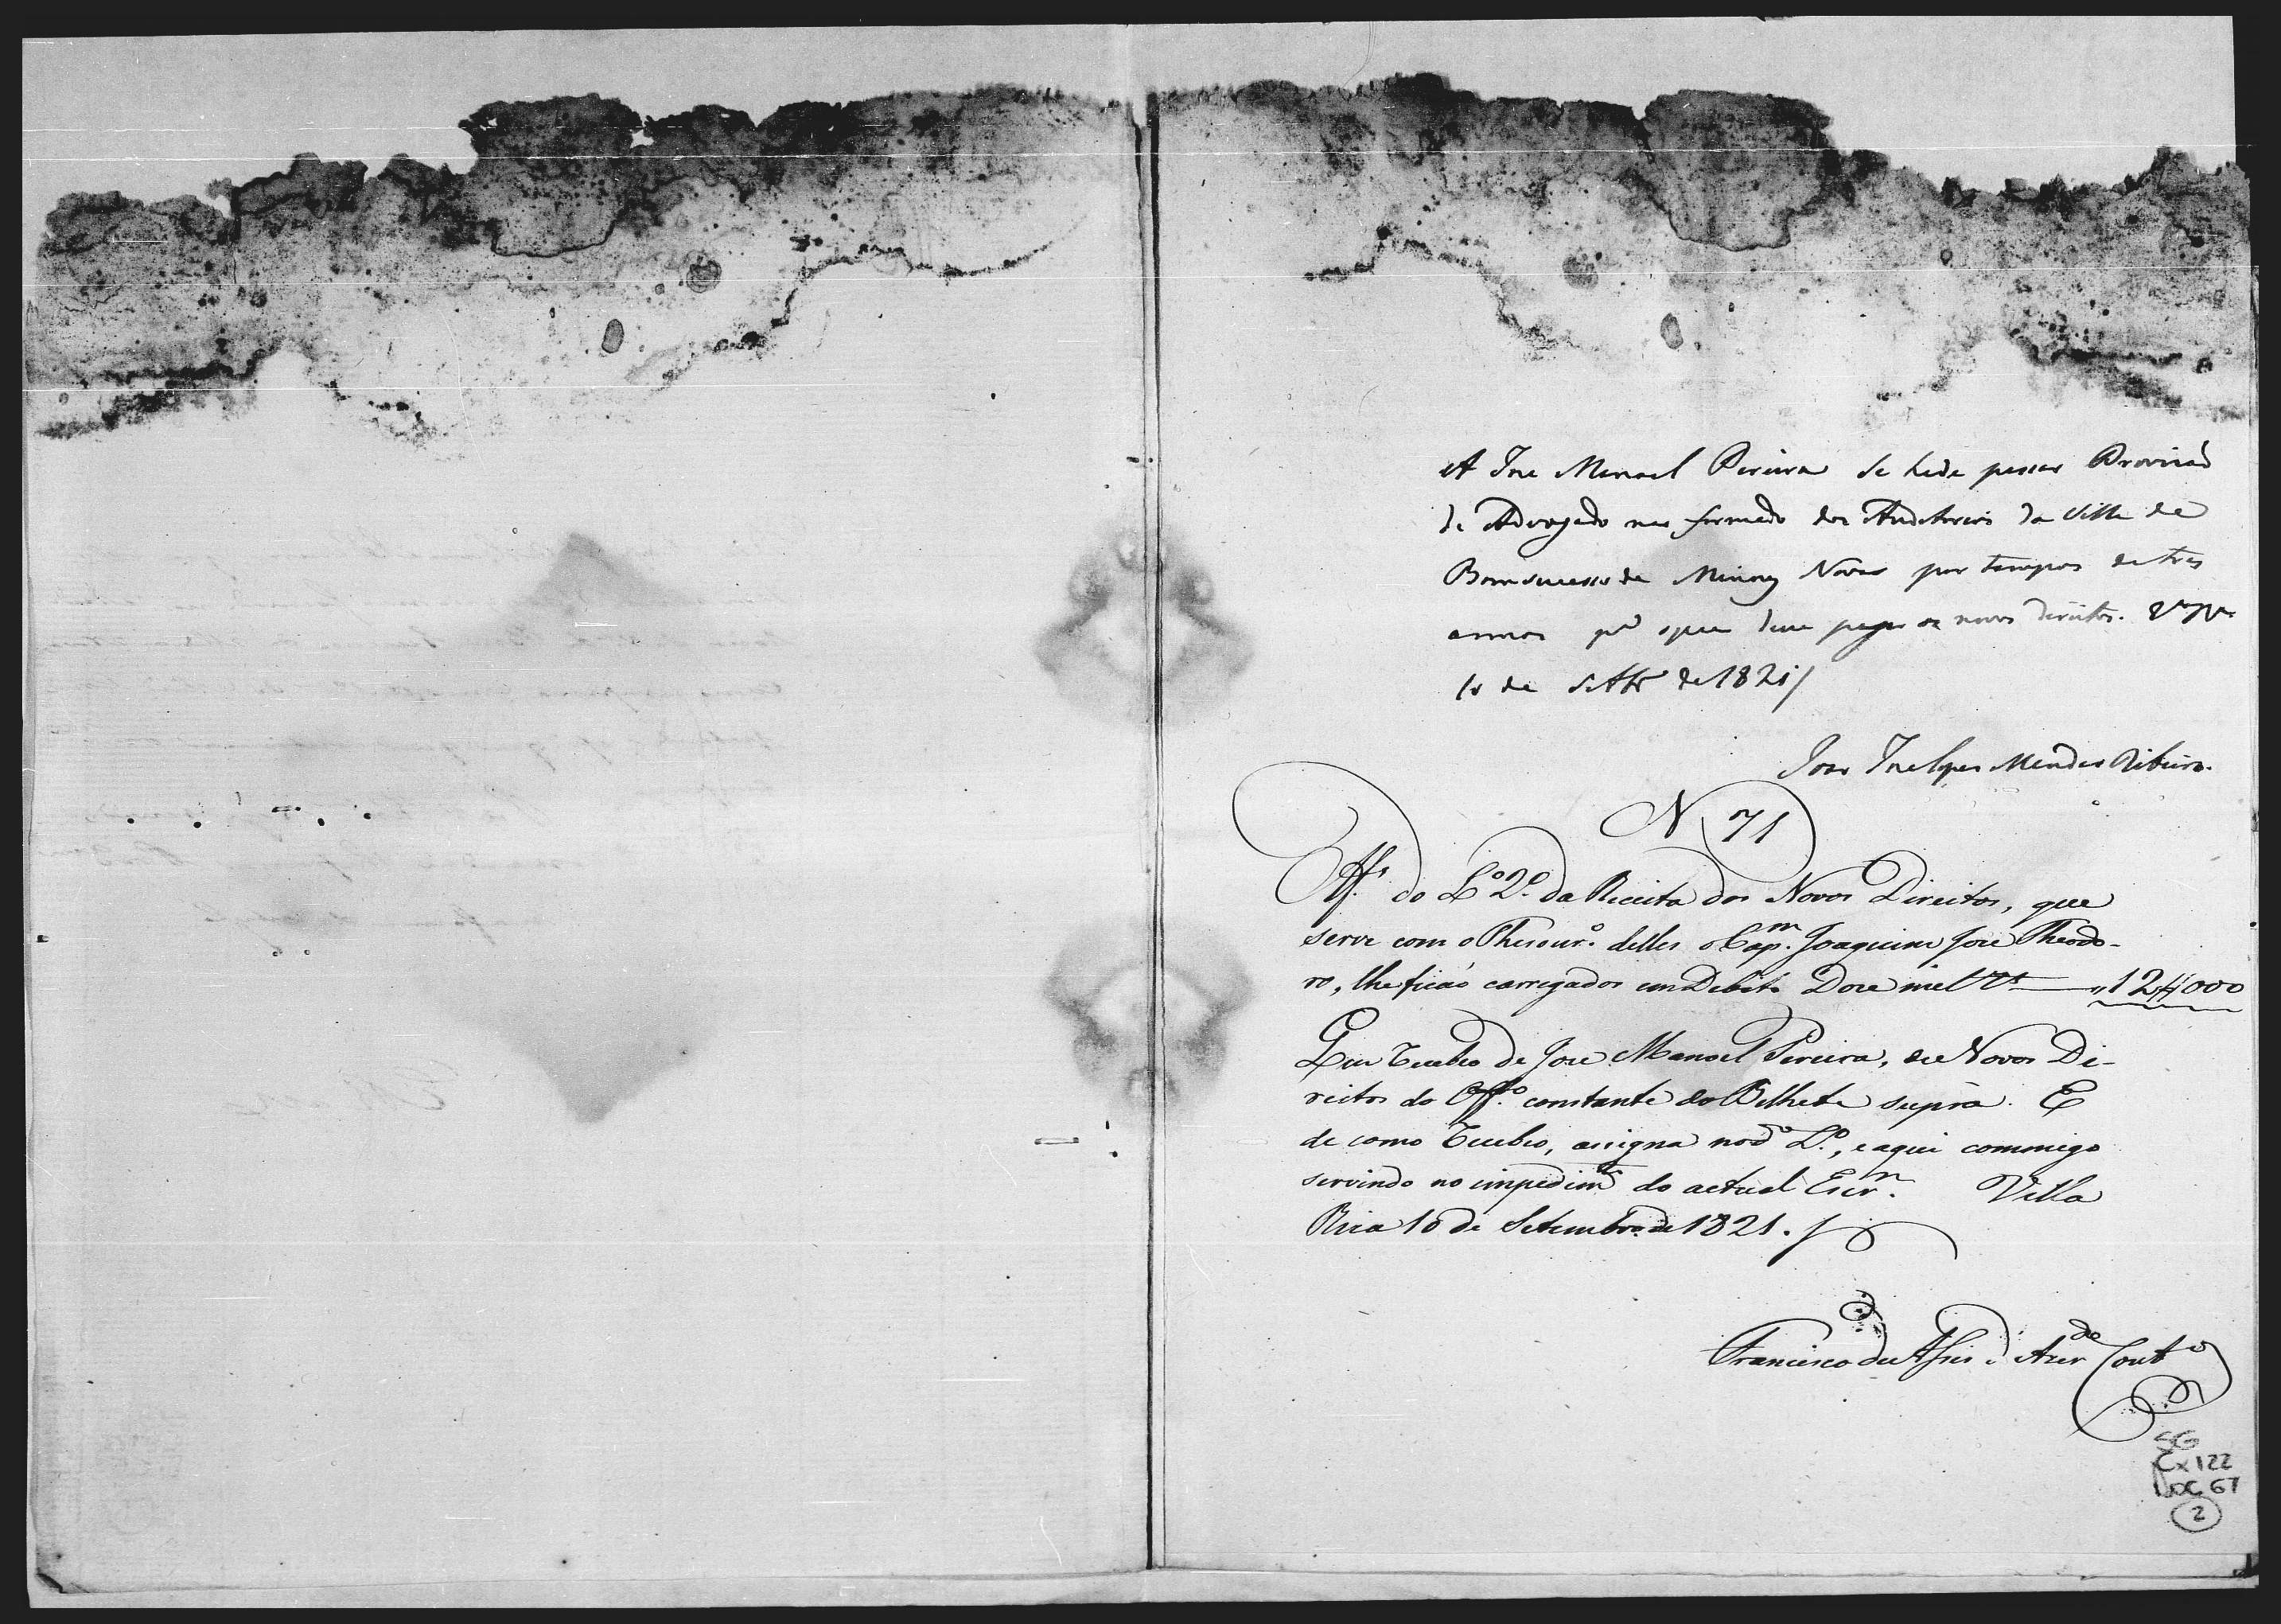 A Joze Manoel Pereira se hade passar Provizaõ
de Advogado naõ formado dos Auditorios da Villa de
Bomsucesso de Minas Novas por tempos de tres
annos p.ª o que deve pagar os novos direitos. V.ª R.ª
10 de Settbr.º de 1821/
Joaõ Joze Lopes Mendes Ribeiro.
N 71
Af do L.º 2.º da Receita dos Novos Direitos, que
serve com o Thesour.º delles o Cap.m Joaquim Joze Theodo-
ro, lhe ficaõ carregados em Debito Doze mil r.s — 12$000
Que recebeo de Joze Manoel Pereira, de Novos Di-
reitos do Off.º constante do Bilhete supra. E
de como recebeo, assigna no d.º L.º, e aqui commigo
servindo no impedim.to do actual Escr.m Villa
Rica 10 de Setembro de 1821.
Francisco de Assis d' Azer.do Cout.º
SG
Cx 122
Doc 67
2